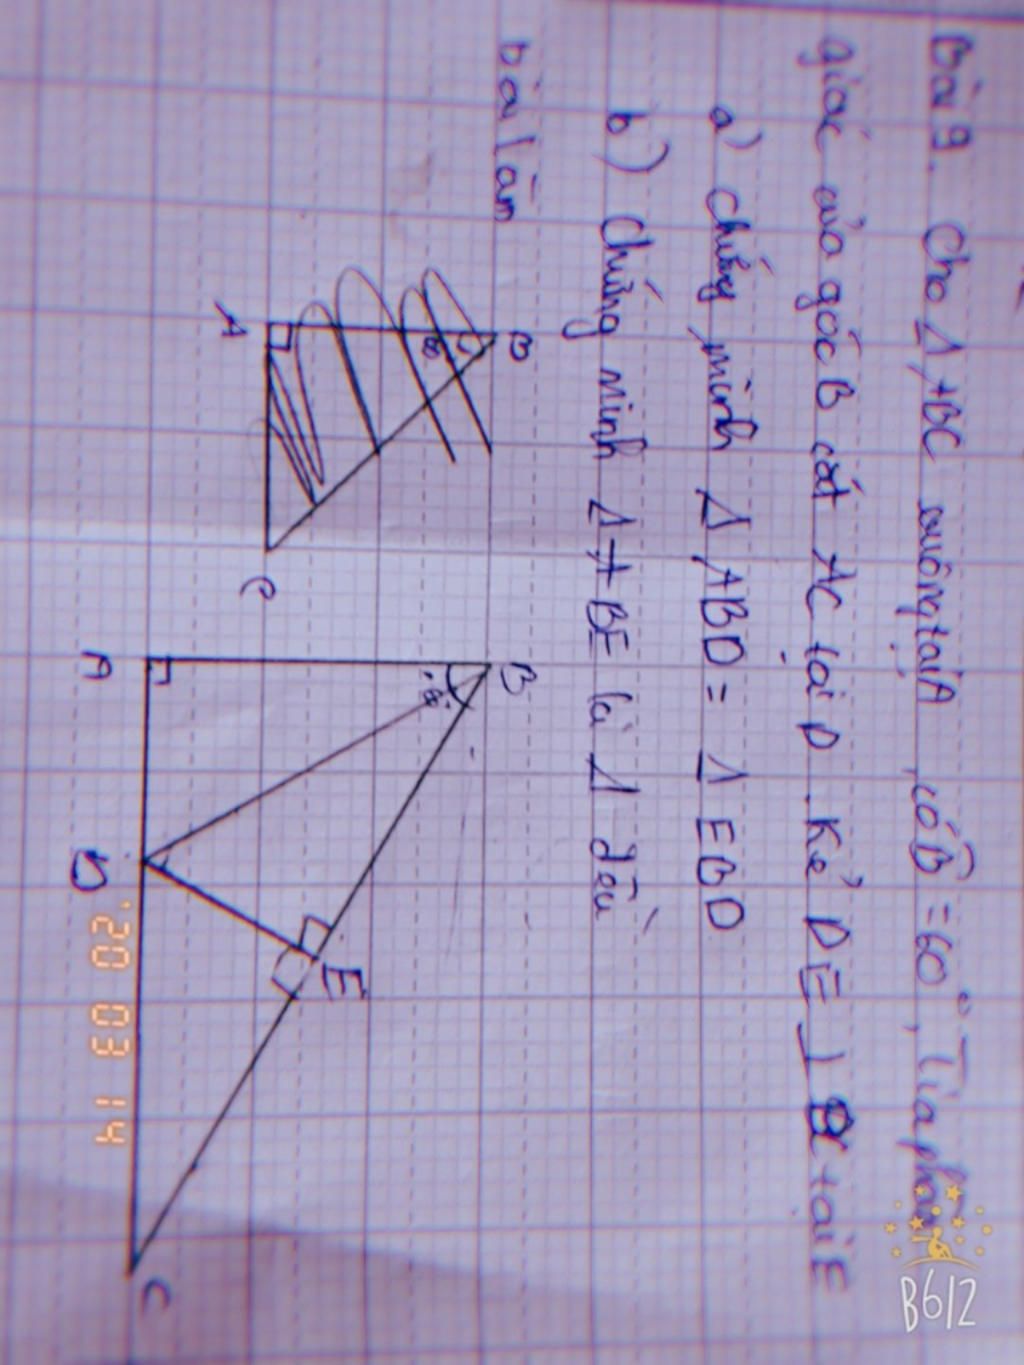 Bài 9. Cho Δ ABC vuông tại A, có B̂ = 60°, Tia phân
giác của góc B cắt AC tại D. Kẻ DE ⊥ BC tại E
a) Chứng minh Δ ABD = Δ EBD
b) Chứng minh Δ ABE là Δ đều
bài làm
B
A
C
B
A
D
E
C
'20 03 14
B612